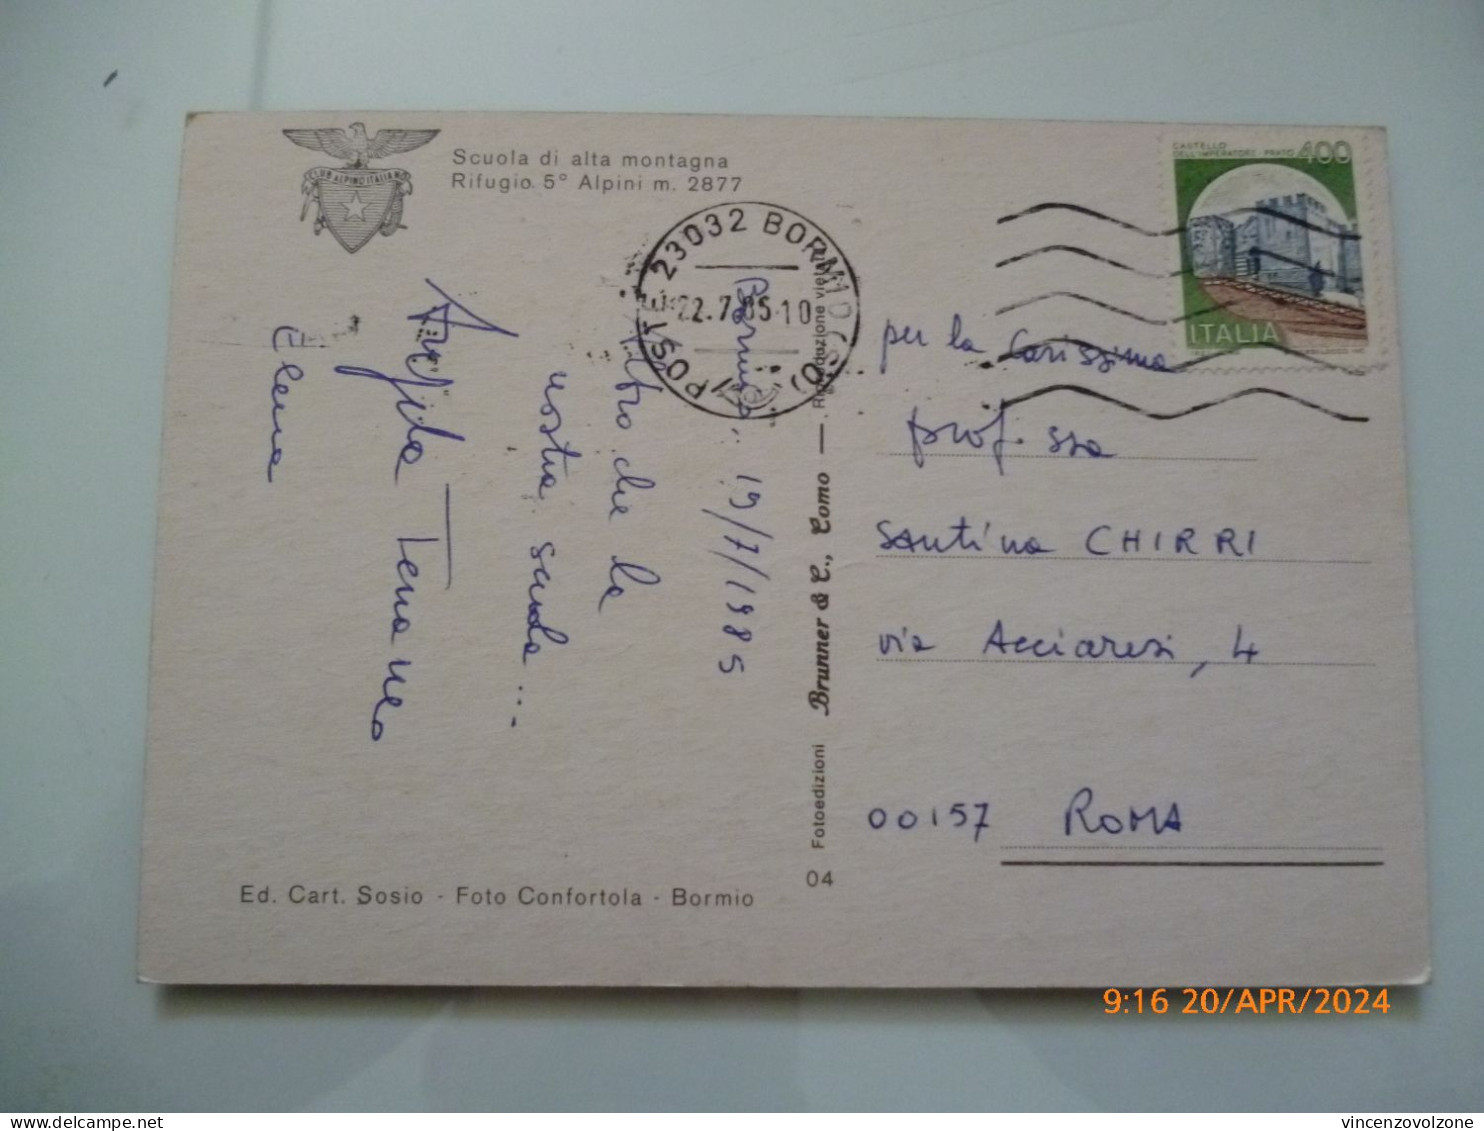 CLUB ALPINO ITALIANO
Scuola di alta montagna
Rifugio 5° Alpini m. 2877
23032 BORMIO (SO)
22.7.85-10
CASTELLO
DELL'IMPERATORE - PRATO 400
ITALIA
Bormio 19/7/1985
Altro che la
nostra scuola...
Elena
per la Carissima
prof.ssa
Santina CHIRRI
via Acciaresi, 4
00157 ROMA
Fotoedizioni Brunner & C., Como — Riproduzione vietata
04
Ed. Cart. Sosio - Foto Confortola - Bormio
9:16 20/APR/2024
vincenzovolzone